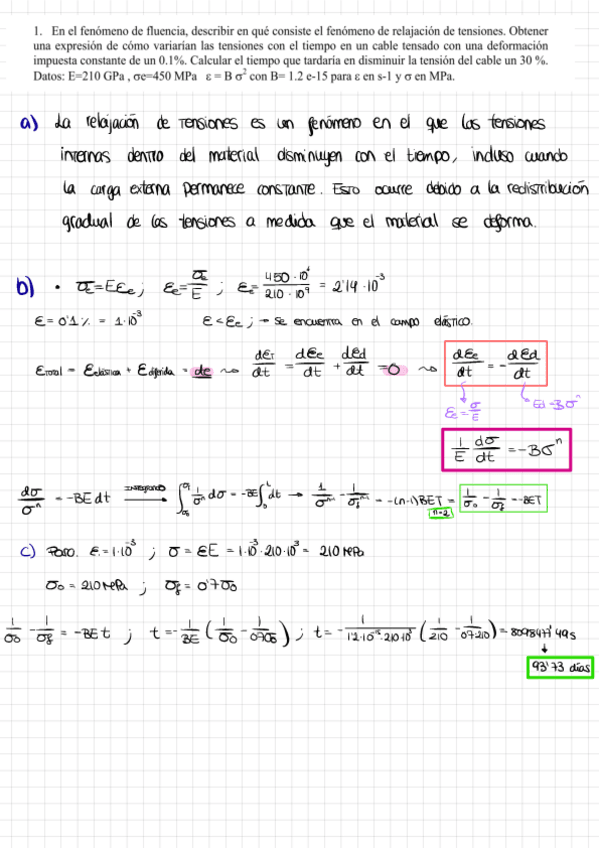 1. En el fenómeno de fluencia, describir en qué consiste el fenómeno de relajación de tensiones. Obtener
una expresión de cómo variarían las tensiones con el tiempo en un cable tensado con una deformación
impuesta constante de un 0.1%. Calcular el tiempo que tardaría en disminuir la tensión del cable un 30 %.
Datos: E=210 GPa , σe=450 MPa ε = B σ² con B= 1.2 e-15 para ε en s-1 y σ en MPa.
a) La relajación de tensiones es un fenómeno en el que las tensiones
internas dentro del material disminuyen con el tiempo, incluso cuando
la carga externa permanece constante. Esto ocurre debido a la redistribución
gradual de las tensiones a medida que el material se deforma.
b) • σe=Eεe; εe=σe/E ; εe= 450·10⁶/210·10⁹ = 2'14·10⁻³
ε= 0'1% = 1·10⁻³ ε<εe ; → se encuentra en el campo elástico.
εtotal = εelástica + εdiferida = cte ⇝ dεT/dt = dεe/dt + dεd/dt = 0 ⇝ dεe/dt = - dεd/dt
εe=σ/E εd=Bσⁿ
1/E dσ/dt = -Bσⁿ
dσ/σⁿ = -BE dt integrando ∫ 1/σⁿ dσ = -BE∫ dt →
n=2
1/σ0 - 1/σf = -BET
c) Paso. ε=1·10⁻³ ; σ = εE = 1·10⁻³·210·10³ = 210 MPa
σ0 = 210 MPa ; σf = 0'7σ0
1/σ0 - 1/σf = -BEt ; t=-1/BE (1/σ0 - 1/0'7σ0) ; t= - 1/1'2·10⁻¹⁵·210·10³ (1/210 - 1/0'7·210) = 8098477'49s
93'73 días